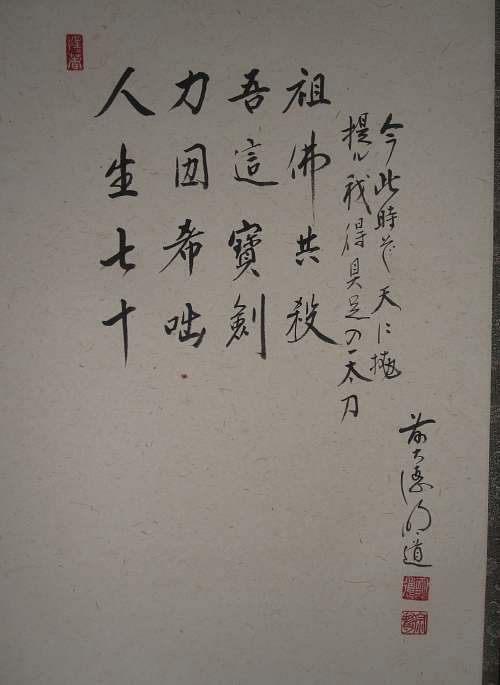 人生七十
力囲希咄
吾這寶劍
祖佛共殺
提ル我得具足の一太刀
今此時ぞ天に擲
前大徳明道